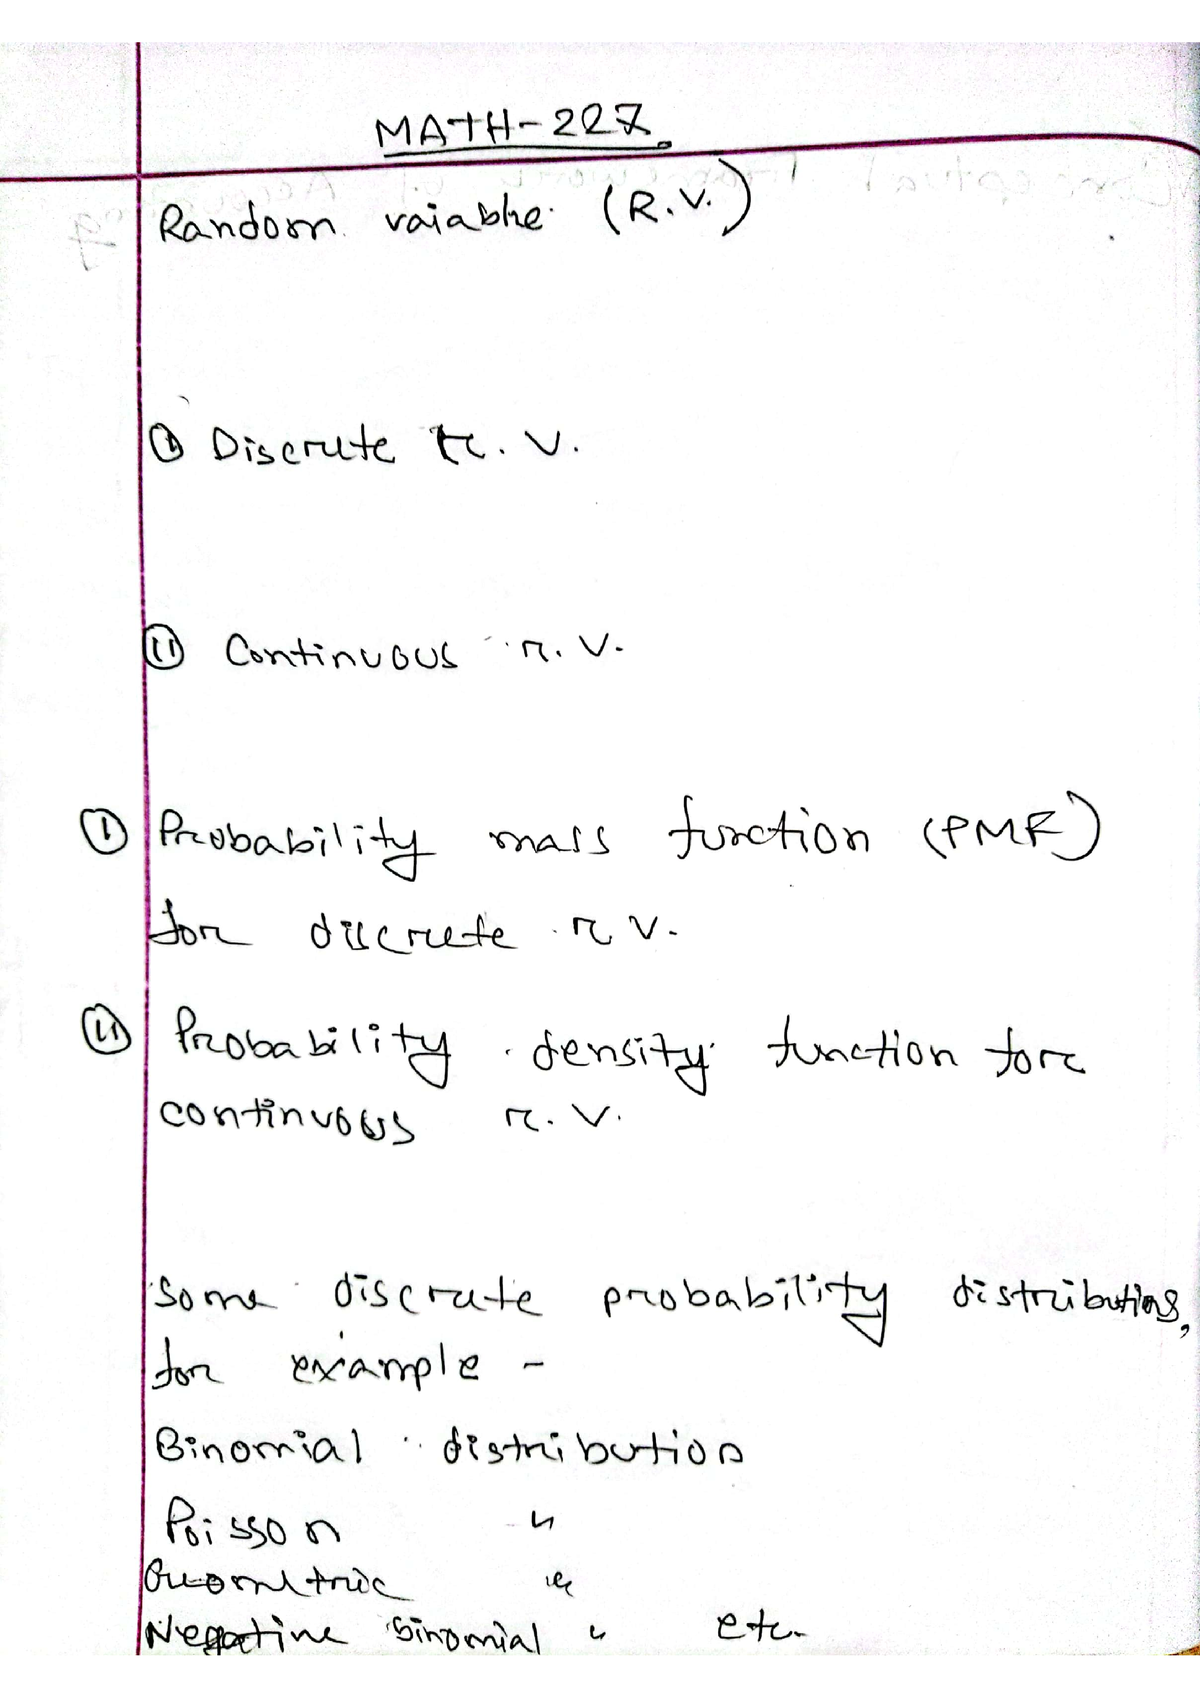 MATH-227.
Random vaiable (R.V.)
(i) Discrete r.v.
(ii) Continuous r.v.
(i) Probability mass function (PMF)
for discrete r v.
(ii) Probability density function for
continuous r.v.
Some discrete probability distributions,
for example -
Binomial distribution
Poisson "
Geometric "
Negative Binomial " etc.